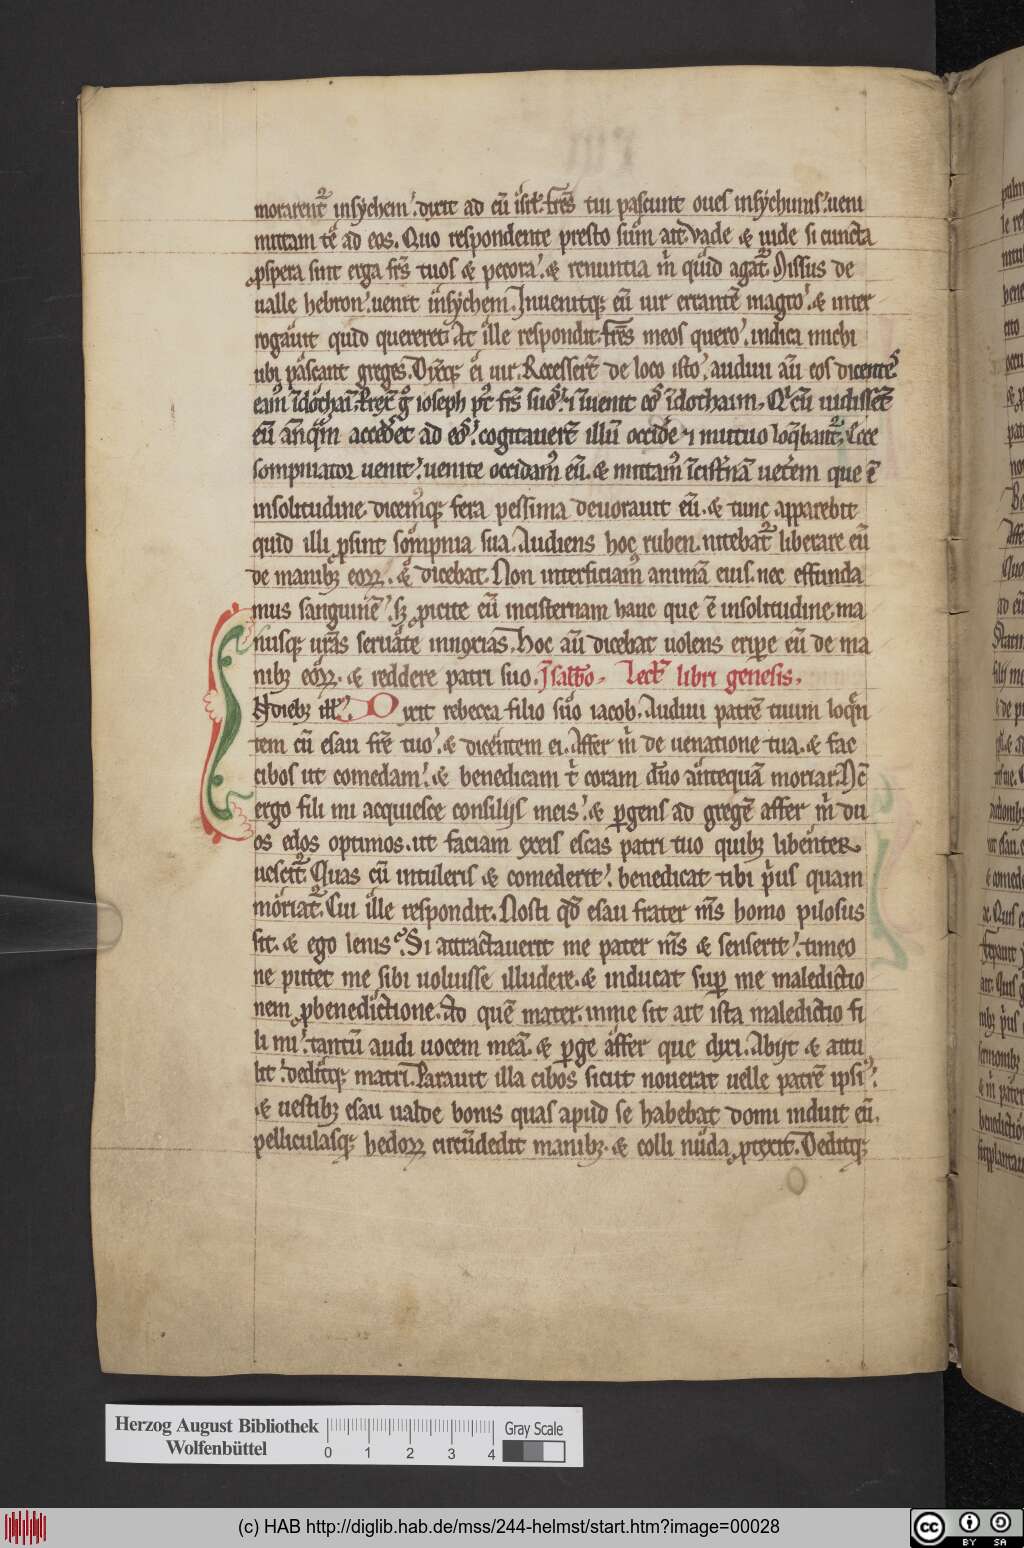 morarent᷑ insychem. dixit ad eū isr̄l. fr̄es tui pascunt oues insychimis. ueni
mittam te ad eos. Quo respondente presto sum ait. Vade & uide si cuncta
ꝓspera sint erga fr̄s tuos & pecora. & renuntia m̄ quid agat᷑. Missus de
ualle hebron. uenit insychem. Inuenitq; eū uir errantē inagro. & inter
rogauit quid quereret. At ille respondit. fr̄es meos quero. indica michi
ubi pascant greges. Dixitq; ei uir. Recesserūt de loco isto. audiui aū eos dicentes
eam᷒ ī dothaī. Prexit g° ioseph p᷒t fr̄s suos. ⁊ īuenit eos ī dothaim. Qⁱ cū uidissēt
eū anq̄m accederet ad eos. cogitauerūt illū occidē ⁊ mutuo loq̄bant᷑. Ecce
sompniator uenit. uenite occidam᷒ eū. & mittam᷒ ī cist̄nā ueterem que ē
insolitudine. dicem᷒q; fera pessima deuorauit eū. & tunc apparebit
quid illi ꝓsint sompnia sua. Audiens hoc ruben. nitebat᷑ liberare eū
de manibꝫ eoꝝ. & dicebat. Non interficiam᷒ animā eius. nec effunda
mus sanguinē. sꝫ ꝓicite eū incisternam hanc que ē insolitudine. ma
nusq; ur̄as seruate innoxias. Hoc aū dicebat uolens eriꝑe eū de ma
nibꝫ eoꝝ. & reddere patri suo. J sabb̄o. Lect̄ libri genesis.
In diebꝫ ill̄. Dixit rebecca filio suo iacob. Audiui patrē tuum loq̄n
tem cū esau fr̄e tuo. & dicentem ei. Affer m̄ de uenatione tua. & fac
cibos ut comedam. & benedicam t̄ coram dn̄o antequā moriar. Nc̄
ergo fili mi acquiesce consilijs meis. & ꝑgens ad gregē affer m̄ du
os edos optimos. ut faciam exeis escas patri tuo quibꝫ libenter
uescit᷑. Quas cū intuleris & comederit. benedicat tibi pⁱus quam
moriat᷑. Cui ille respondit. Nosti qd̄ esau frater m̄s homo pilosus
sit. & ego lenis. Si attractauerit me pater m̄s & senserit. timeo
ne putet me sibi uoluisse illudere. & inducat suꝑ me maledictio
nem ꝓbenedictione. Ad quē mater. inme sit ait ista maledictio fi
li mi. tantū audi uocem meā. & ꝑge affer que dixi. Abijt & attu
lit. deditq; matri. Parauit illa cibos sicut nouerat uelle patrē ipsi᷒.
& uestibꝫ esau ualde bonis quas apud se habebat domi induit eū.
pelliculasq; hedoꝝ circūdedit manibꝫ. & colli nuda ꝓtexit. Deditq;
Herzog August Bibliothek
Wolfenbüttel
0 1 2 3 4
Gray Scale
(c) HAB http://diglib.hab.de/mss/244-helmst/start.htm?image=00028
cc BY SA